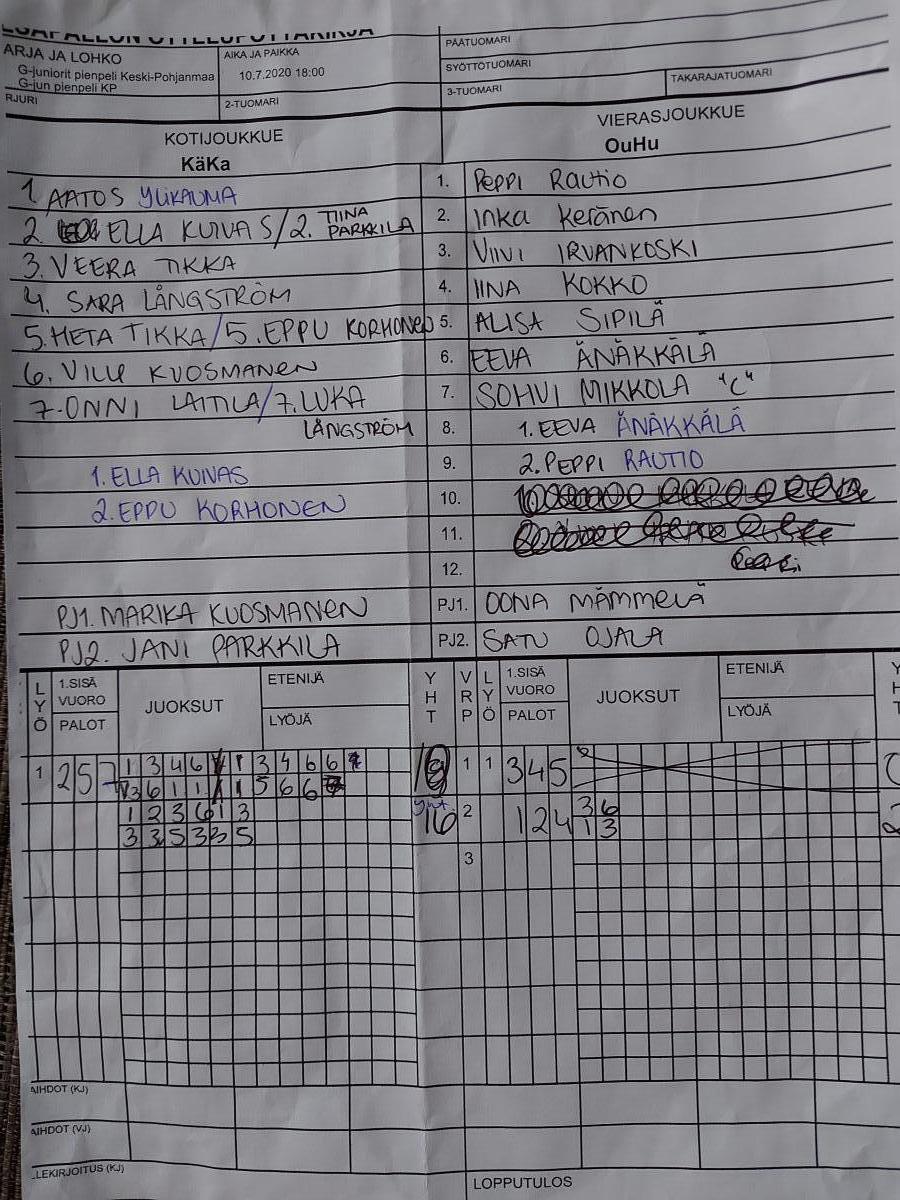 PÄÄTUOMARI
ARJA JA LOHKO
G-juniorit pienpeli Keski-Pohjanmaa
G-jun pienpeli KP
AIKA JA PAIKKA
10.7.2020 18:00
SYÖTTÖTUOMARI
3-TUOMARI
TAKARAJATUOMARI
RJURI
2-TUOMARI
KOTIJOUKKUE
KäKa
VIERASJOUKKUE
OuHu
1. AATOS YLIKAUMA
2. ELLA KUIVAS/2. TIINA PARKKILA
3. VEERA TIKKA
4. SARA LÅNGSTRÖM
5. HETA TIKKA/5. EPPU KORHONEN
6. VILLE KUOSMANEN
7. ONNI LAITILA/7. LUKA
LÅNGSTRÖM
1. ELLA KUIVAS
2. EPPU KORHONEN
PJ1. MARIKA KUOSMANEN
PJ2. JANI PARKKILA
1. Peppi Rautio
2. Inka Keränen
3. VIIVI IRVANKOSKI
4. IINA KOKKO
5. ALISA SIPILÄ
6. EEVA ÄNÄKKÄLÄ
7. SOHVI MIKKOLA "C"
8. 1. EEVA ÄNÄKKÄLÄ
9. 2. PEPPI RAUTIO
10.
11.
12.
PJ1. OONA MÄMMELÄ
PJ2. SATU OJALA
LYÖ
1.SISÄ VUORO
PALOT
JUOKSUT
ETENIJÄ
LYÖJÄ
YHT
VRP
LYÖ
1.SISÄ VUORO
PALOT
JUOKSUT
ETENIJÄ
LYÖJÄ
YHT
1 2 5 7 1 3 4 6
3 4 6 6
3 6 1 1
1 5 6 6
1 2 3 6 1 3
3 3 5 3 3 5
yht.
16
1 1 3 4 5
2 1 2 4 3 6
1 3
3
AIHDOT (KJ)
AIHDOT (VJ)
LEKIRJOITUS (KJ)
LOPPUTULOS